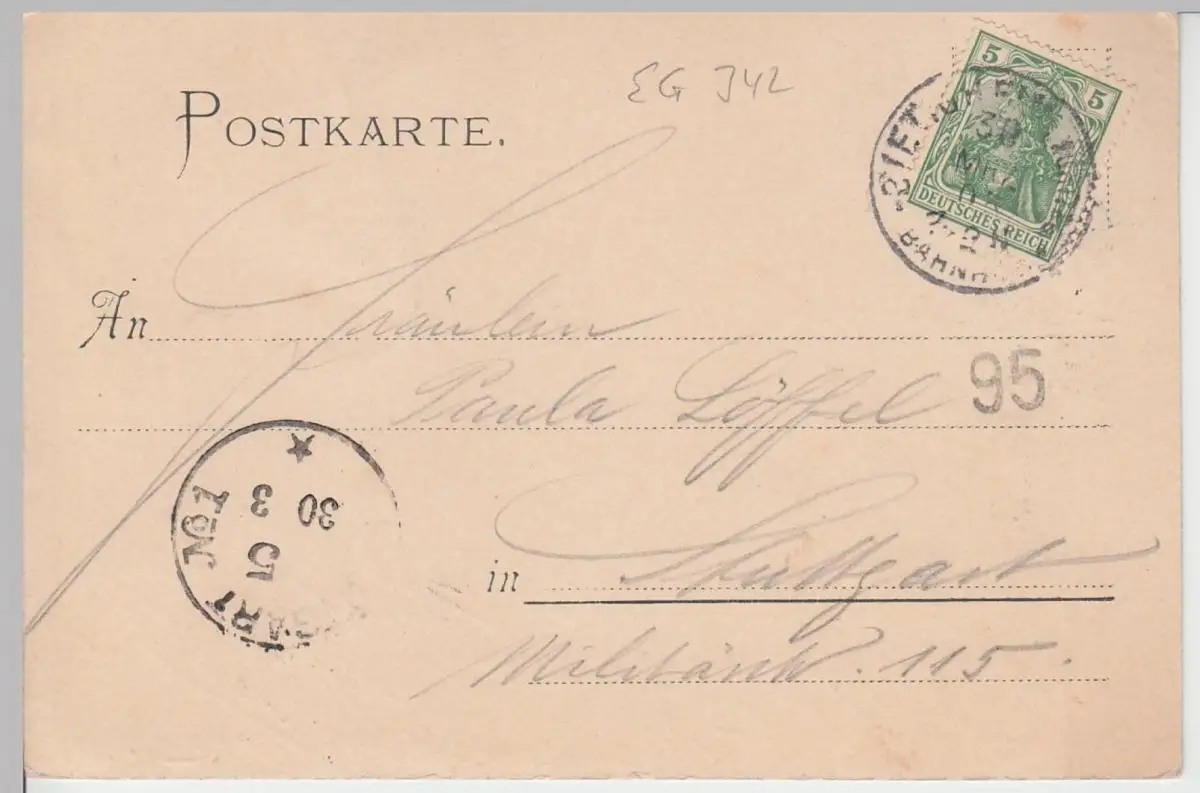 EG 342
POSTKARTE.
5 5
DEUTSCHES REICH
30
BAHNH
An Fräulein
Paula Löffel
95
in Stuttgart
Militärstr. 115.
30 3
5